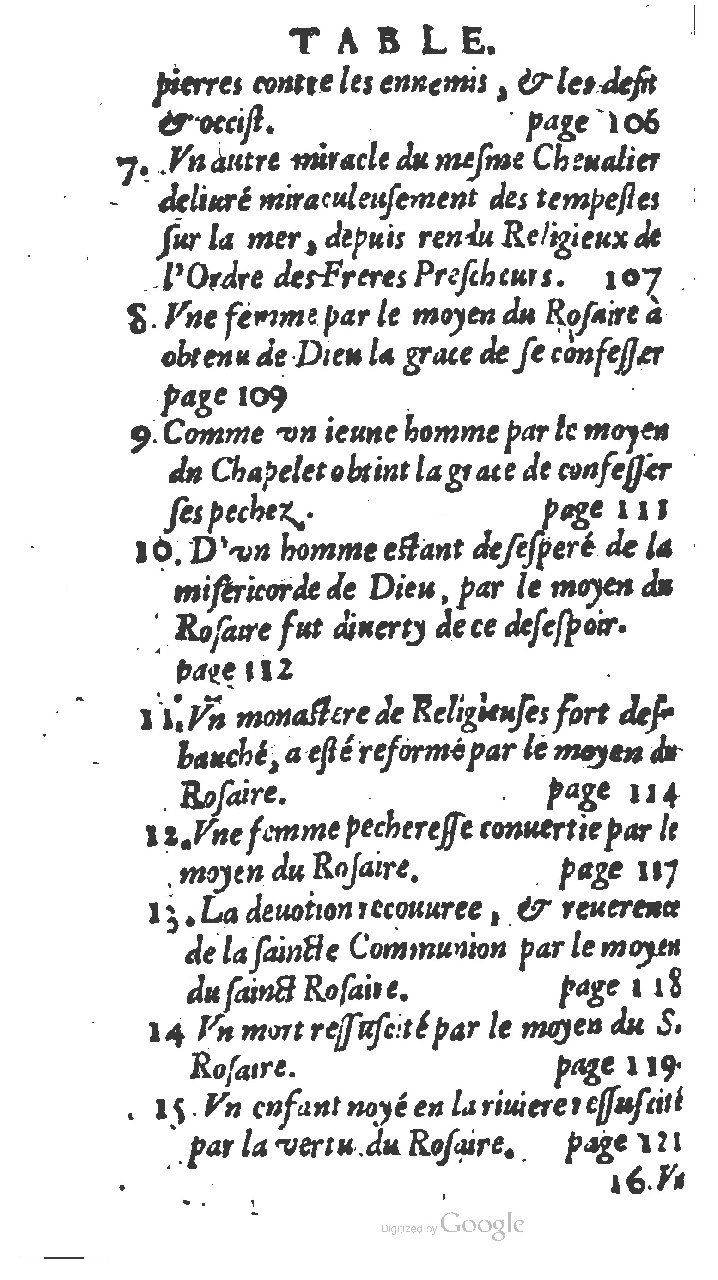 TABLE.
pierres contre les ennemis, & les desfit
& occist.  page 106
7. Vn autre miracle du mesme Cheualier
deliuré miraculeusement des tempestes
sur la mer, depuis rendu Religieux de
l'Ordre des Freres Prescheurs. 107
8. Vne femme par le moyen du Rosaire à
obtenu de Dieu la grace de se confesser
page 109
9. Comme vn ieune homme par le moyen
dn Chapelet obtint la grace de confesser
ses pechez. page 111
10. D'vn homme estant desesperé de la
misericorde de Dieu, par le moyen du
Rosaire fut diuerty de ce desespoir.
page 112
11. Vn monastere de Religieuses fort des-
bauché, a esté reformé par le moyen du
Rosaire. page 114
12. Vne femme pecheresse conuertie par le
moyen du Rosaire. page 117
13. La deuotion recouuree, & reuerence
de la saincte Communion par le moyen
du sainct Rosaire. page 118
14 Vn mort ressuscité par le moyen du S.
Rosaire. page 119
15. Vn enfant noyé en la riuiere ressuscité
par la vertu du Rosaire. page 121
16. Vn
Digitized by Google